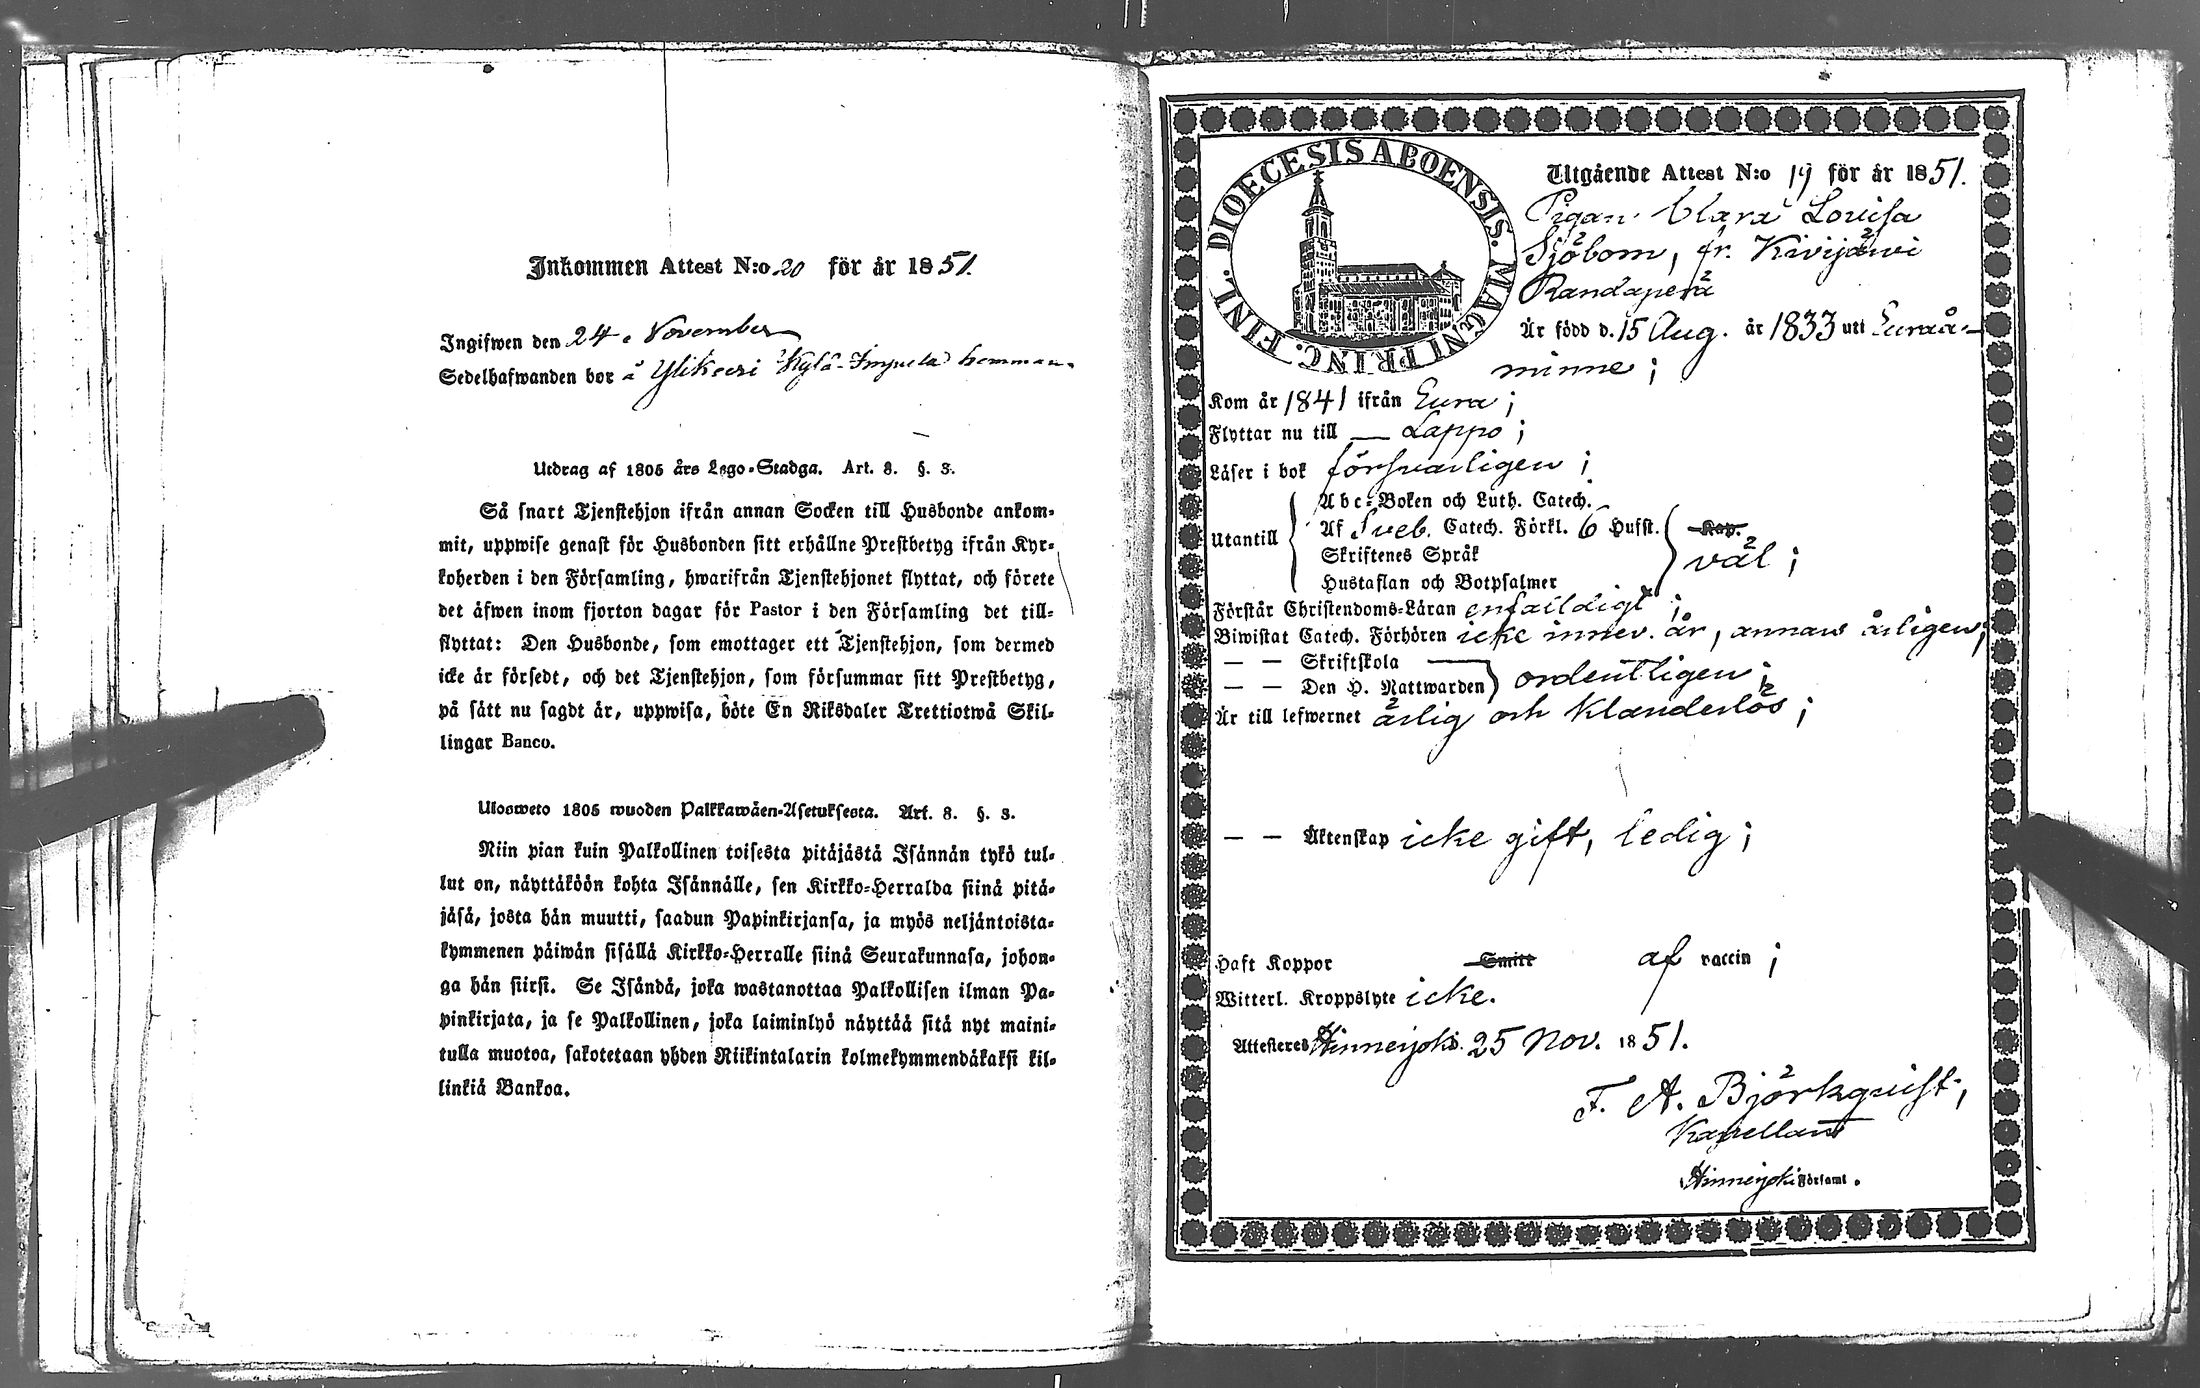 Inkommen Attest N:o 20 för år 1851.
Ingifwen den 24 November
Sedelhafwanden bor å Ylikeeri Kylä-Impula hemman.
Utdrag af 1805 års Lego-Stadga. Art. 8. §. 3.
Så snart Tjenstehjon ifrån annan Socken till Husbonde ankom-
mit, uppwise genast för Husbonden sitt erhållne Prestbetyg ifrån Kyr-
koherden i den Församling, hwarifrån Tjenstehjonet flyttat, och förete
det äfwen inom fjorton dagar för Pastor i den Församling det till-
flyttat: Den Husbonde, som emottager ett Tjenstehjon, som dermed
icke är försedt, och det Tjenstehjon, som försummar sitt Prestbetyg,
på sätt nu sagdt är, uppwisa, böte En Riksdaler Trettiotwå Skil-
lingar Banco.
Ulosweto 1805 wuoden Palkkawäen-Asetuksesta. Art. 8. §. 3.
Niin pian kuin Palkollinen toisesta pitäjästä Isännän tykö tul-
lut on, näyttäköön kohta Isännälle, sen Kirkko-Herralda siinä pitä-
jäsä, josta hän muutti, saadun Papinkirjansa, ja myös neljäntoista-
kymmenen päiwän sisällä Kirkko-Herralle siinä Seurakunnasa, johon-
ga hän siirsi. Se Isändä, joka wastanottaa Palkollisen ilman Pa-
pinkirjata, ja se Palkollinen, joka laiminlyö näyttää sitä nyt maini-
tulla muotoa, sakotetaan yhden Riikintalarin kolmekymmendäkaksi kil-
linkiä Bankoa.
DIOECESIS ABOENSIS. MAGNI PRINC. FINL.
Utgående Attest N:o 19 för år 1851.
Pigan Clara Lovisa
Sjöbom, fr. Kivijärvi
Randaperä
Är född d. 15 Aug. år 1833 uti Euraå-
minne;
Kom år 1841 ifrån Eura;
Flyttar nu till — Lappo;
Läser i bok försvarligen;
Utantill
Abc-Boken och Luth. Catech.
Af Sveb. Catech. Förkl. 6 Hufst. Kap.
Skriftenes Språk väl;
Hustaflan och Botpsalmer
Förstår Christendoms-Läran enfaldigt;
Biwistat Catech. Förhören icke innev. år, annars årligen;
— — Skriftskola
— — Den H. Nattwarden ordentligen;
Är till lefwernet ärlig och klanderlös;
— — Äktenskap icke gift, ledig;
Haft Koppor Smitt af vaccin;
Witterl. Kroppslyte icke.
Attesteres Hinnerjoki d. 25 Nov. 1851.
F. A. Björkqvist,
Kapellan
Hinnerjoki Församl.